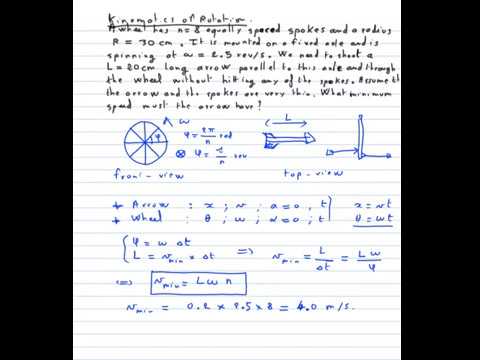 Kinematics of Rotation.
A wheel has n=8 equally spaced spokes and a radius
R = 30 cm. It is mounted on a fixed axle and is
spinning at ω = 2.5 rev/s. We need to shoot a
L = 20cm long arrow parallel to this axle and through
the wheel without hitting any of the spokes. Assume that
the arrow and the spokes are very thin. What minimum
speed must the arrow have?
ω
φ
φ = 2π/n rad
⊗ φ = 1/n rev
L
front-view
top-view
* Arrow : x ; v ; a=0 ; t
x = vt
* Wheel : θ ; ω ; α=0 ; t
θ = ωt
φ = ω Δt
L = v min × Δt
⇒ v min = L/Δt = Lω/φ
⇒ v min = L ω n
v min = 0.2 × 2.5 × 8 = 4.0 m/s.